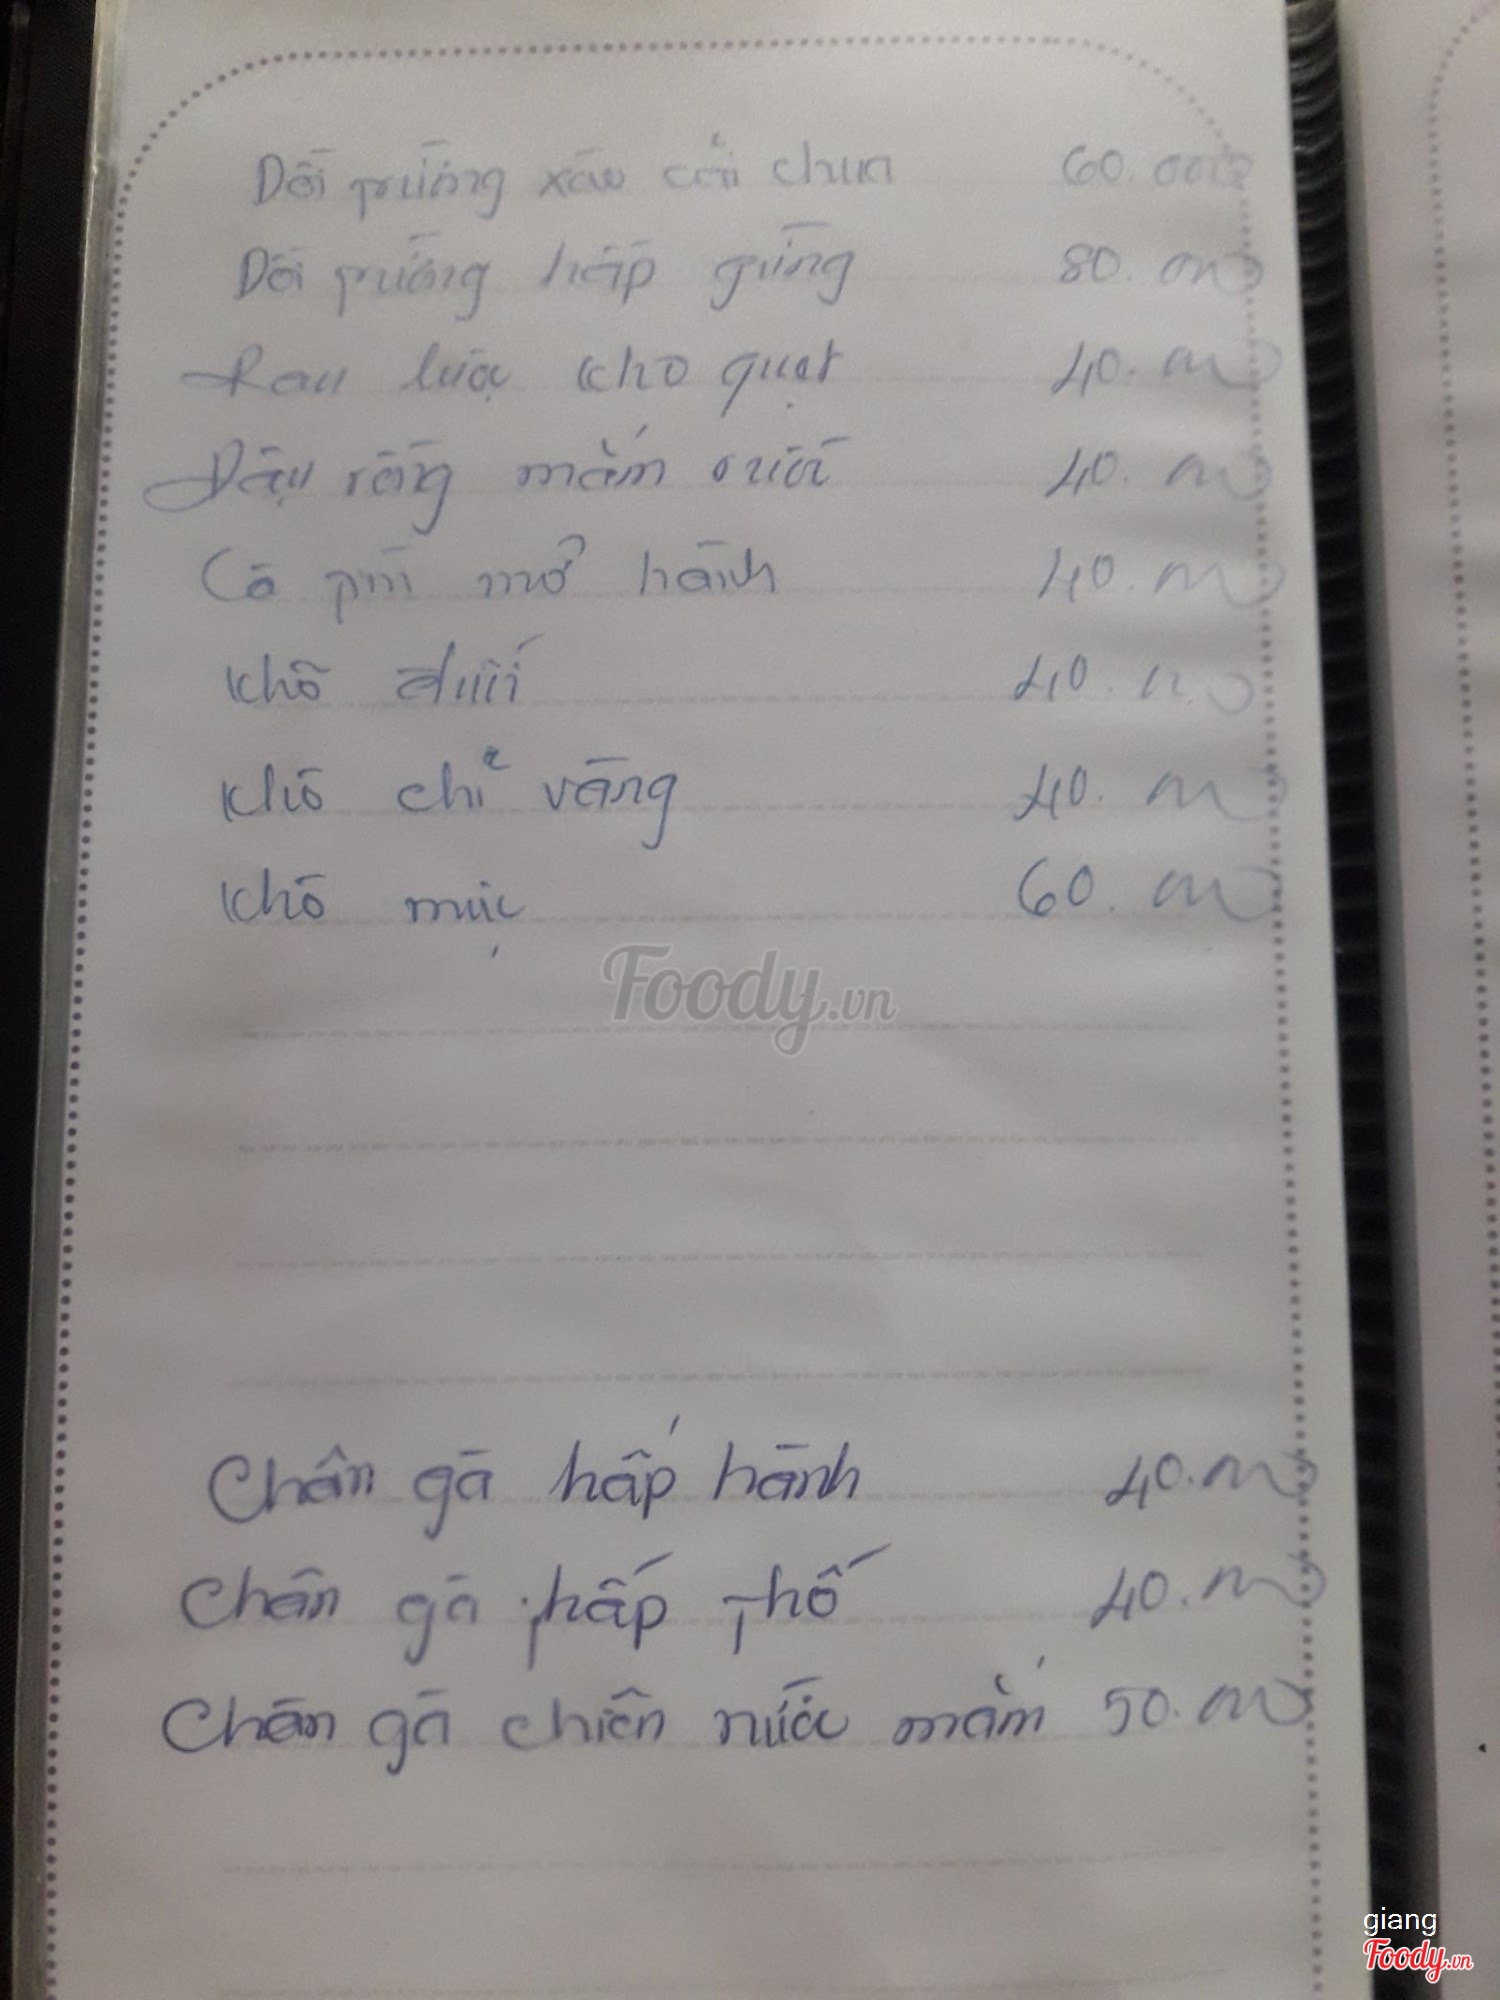 Dồi trường xào cải chua 60.000
Dồi trường hấp gừng 80.000
Rau luộc kho quẹt 40.000
Đậu rồng mắm ruốc 40.000
Cà pín mỡ hành 40.000
Khô đuối 40.000
Khô chỉ vàng 40.000
Khô mực 60.000
Foody.vn
Chân gà hấp hành 40.000
Chân gà hấp thố 40.000
Chân gà chiên nước mắm 50.000
giang
Foody.vn